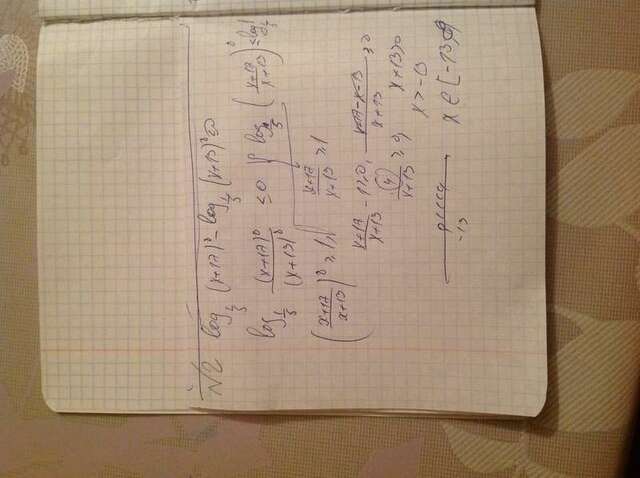 №2 log_{1/3} (x+17)^8 - log_{1/3} (x+13)^8 ≤0
log_{1/3} \frac{(x+17)^8}{(x+13)^8} ≤ 0 log_{1/3} (\frac{x+17}{x+13})^8 ≤ log_{1/3} 1
(\frac{x+17}{x+13})^8 ≥ 1, \frac{x+17}{x+13} ≥ 1
\frac{x+17}{x+13} - 1 ≥ 0, \frac{x+17-x-13}{x+13} ≥ 0
\frac{4}{x+13} ≥ 0, x+13>0
x > -13
-13 x ∈ [-13;